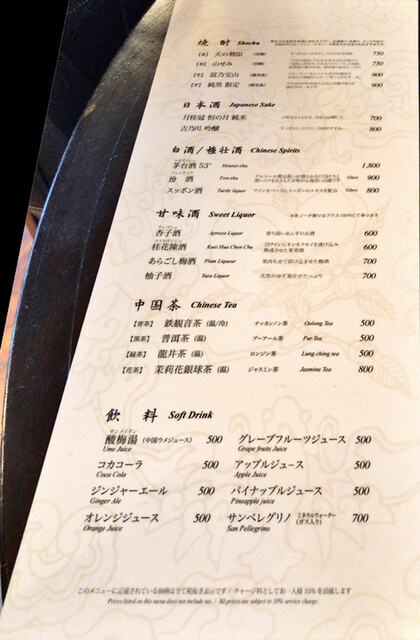 焼酎 Shochu
【麦】 天の刻印 750
【麦】 山せみ 750
【芋】 富乃宝山 900
【芋】 純黒 限定 900
日本酒 Japanese Sake
月桂冠 恒の月 純米 700
吉乃川 吟醸 800
白酒/強壮酒 Chinese Spirits
茅台酒 53° Moutai-shu 1,800
汾酒 Fen-shu Glass 900
スッポン酒 Turtle liquor Glass 800
甘味酒 Sweet Liquor
杏子酒 Apricot Liquor 香り高いあんずのお酒 600
桂花陳酒 Kuei Hua Chen Chu 白ワインにキンモクセイを漬け込み熟成させた果実酒 600
あらごし梅酒 Plum Liqueur 果肉も全て溶け込ませた梅酒 700
柚子酒 Yuzu Liquor 天然のゆず果汁がたっぷり 700
中国茶 Chinese Tea
【青茶】 鉄観音茶(温/冷) テッカンノン茶 Oolong Tea 500
【黒茶】 普洱茶(温) プーアール茶 Pur Tea 500
【緑茶】 龍井茶(温) ロンジン茶 Lung ching tea 500
【花茶】 茉莉花銀球茶(温) ジャスミン茶 Jasmine Tea 800
飲料 Soft Drink
サンメイタン
酸梅湯(中国ウメジュース) 500 グレープフルーツジュース 500
Ume Juice Grape fruits Juice
コカコーラ 500 アップルジュース 500
Coca Cola Apple Juice
ジンジャーエール 500 パイナップルジュース 500
Ginger Ale Pineapple juice
オレンジジュース 500 サンペレグリノ ミネラルウォーター(ガス入り) 700
Orange Juice San Pellegrino
このメニューに記載されている価格は全て税抜き表示です / チャージ料としてお一人様 10% を頂戴します
Prices listed on this menu does not include tax. / All prices are subject to 10% service charge.